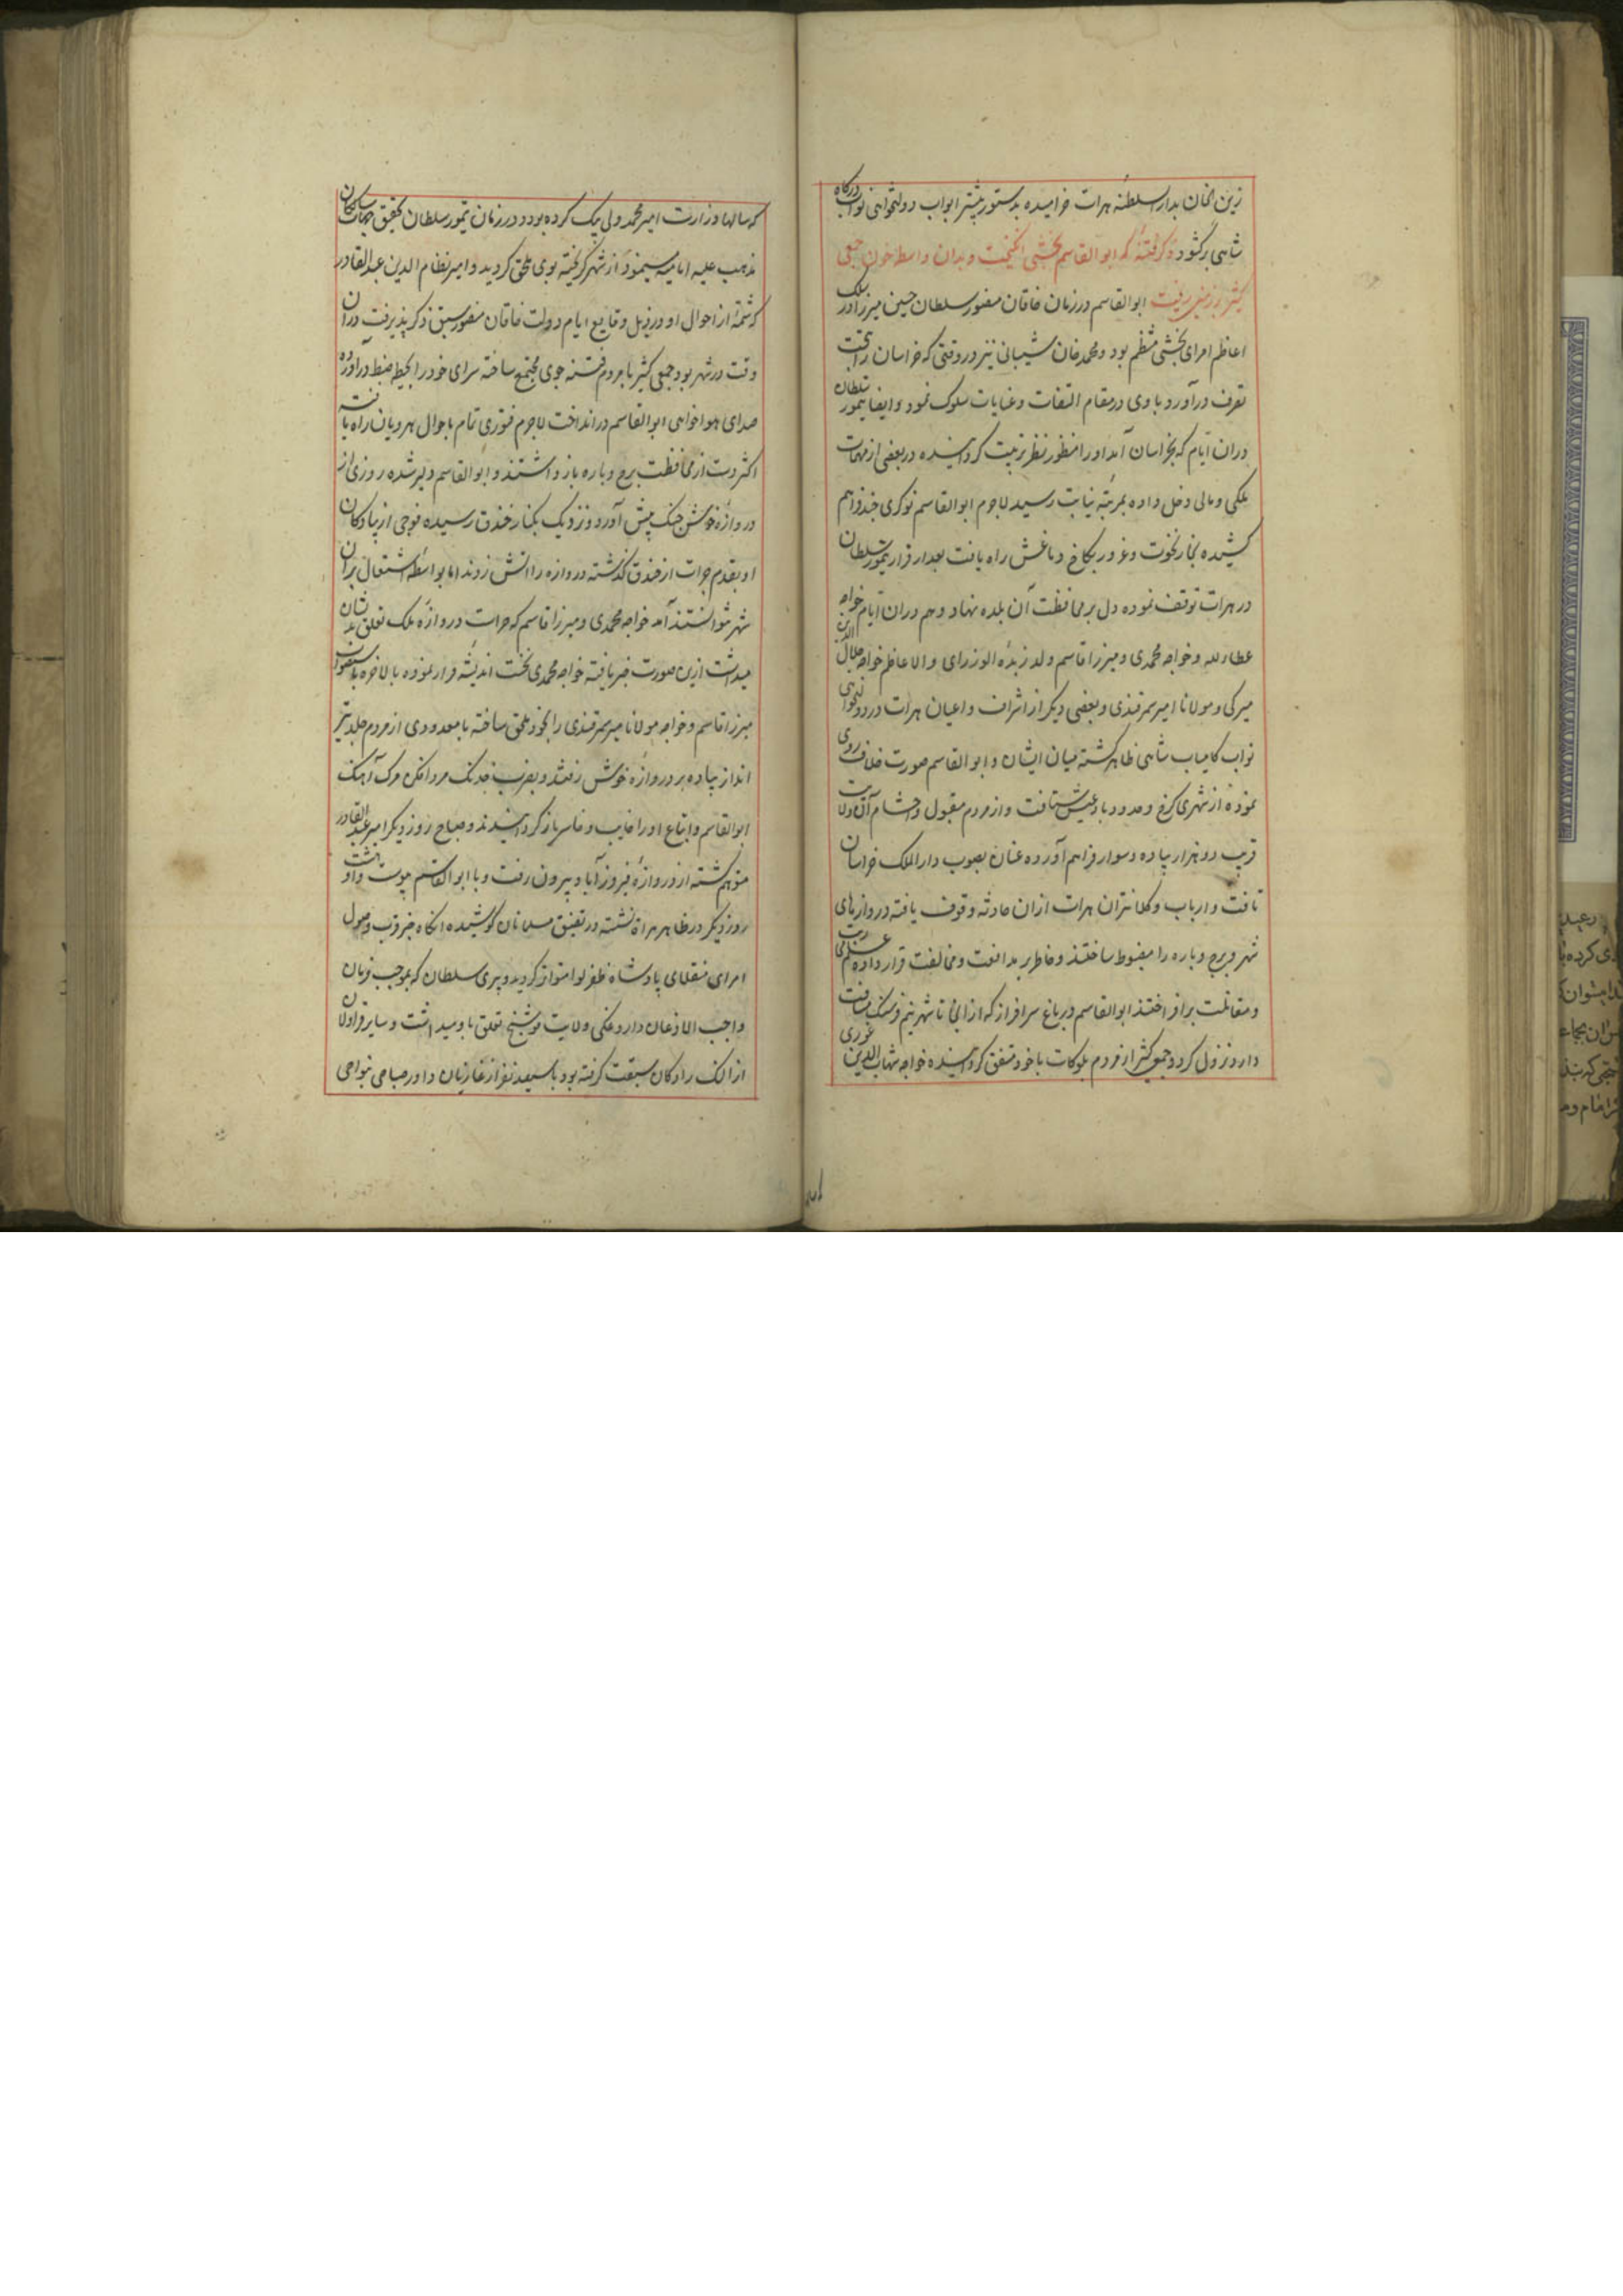 زین الخان بدار السلطنه هرات خرامیده بدستور پیشتر ابواب دولتخواهی نواب درکاه
شاهی برکشود ذکر فتنهٔ که ابوالقاسم بخشی انکیخت و بدان واسطه خون جمعی
کثیر بر زمین ریخت ابوالقاسم در زمان خاقان مغفور سلطان حسین میرزا در سلک
اعاظم امرای بخشی منتظم بود و محمد خان شیبانی نیز در وقتی که خراسان را تحت
تصرف درآورد با وی در مقام التفات و عنایات سلوک نمود و ایضا تیمور سلطان
دران ایام که بخراسان آمد او را منظور نظر تربیت کردانیده در بعضی از مهمات
ملکی و مالی دخل داده بمرتبهٔ نیابت رسید لاجرم ابوالقاسم نوکری چند فراهم
کشیده بخار نخوت و غرور بکاخ دماغش راه یافت بعد از فرار تیمور سلطان
در هرات توقف نموده دل بر محافظت آن بلده نهاد و هم دران ایام خواجه
عطاءالله و خواجه محمدی و میرزا قاسم ولد زبدهٔ الوزرای والاعاظم خواجه جلال الدین
میرکی و مولانا امیر سمرقندی و بعضی دیکر از اشراف و اعیان هرات در دولتخواهی
نواب کامیاب شاهی ظاهر کشته میان ایشان و ابوالقاسم صورت خلاف روی
نموده از شهر بکرخ و حدود بادغیس شتافت و از مردم مقبول و احشام آن ولایت
قریب دو هزار پیاده و سوار فراهم آورده عنان بصوب دارالملک خراسان
تافت و ارباب و کلانتران هرات ازان حادثه وقوف یافته دروازهای
شهر و برج و باره را مضبوط ساختند و خاطر بر مدافعت و مخالفت قرار داده علم محاربت
و مقاتلت برافراختند ابوالقاسم در باغ سرافراز که از انجا تا شهر نیم فرسنک مسافت
دارد نزول کرد و جمع کثیر از مردم بلوکات با خود متفق کردانیده خواجه شهاب الدین غوری
که سالها وزارت امیر محمد ولی بیک کرده بود و در زمان تیمور سلطان تحقیق جهات سالکان
مذهب علیه امامیه مینمود از شهر کریخته بوی ملحق کردید و امیر نظام الدین عبدالقادر
که شمهٔ از احوال او در ذیل وقایع ایام دولت خاقان مغفور سبق ذکر پذیرفت دران
وقت در شهر بود جمعی کثیر با مردم فتنه جوی مجتمع ساخته سرای خود را بحیطه ضبط درآورده
صدای هواخواهی ابوالقاسم درانداخت لاجرم فتوری تمام باحوال هرویان راه یافته
اکثر دست از محافظت برج و باره بازداشتند و ابوالقاسم دلیر شده روزی از
دروازه خوش جنک پیش آورد و نزدیک بکنار خندق رسیده فوجی از پیادکان
او بقدم جرات از خندق کذشته دروازه را آتش زدند اما بواسطهٔ اشتعال نیران
شهر نتوانستند آمد خواجه محمدی و میرزا قاسم که حراست دروازهٔ ملک تعلق بدیشان
میداشت ازین صورت خبر یافته خواجه محمدی نخست اندیشه فرار نموده بالاخره باستصواب
میرزا قاسم و خواجه مولانا میر سمرقندی را بخود ملحق ساخته با معدودی از مردم جلد تیر
انداز پیاده بر دروازهٔ خوش رفتند و بضرب خدنک مردافکن مرک آهنک
ابوالقاسم و اتباع او را خایب و خاسر باز کردانیدند و صباح روز دیکر امیر عبدالقادر
متوهم کشته از دروازهٔ فیروزآباد بیرون رفت و با ابوالقاسم پیوست و او هشت
روز دیکر در ظاهر هراة نشسته در تضییق مسلمانان کوشیده انکاه خبر قرب وصول
امرای منقلای پادشاه ظفر لوا متواتر کردید و پیری سلطان که بموجب فرمان
واجب الاذعان داروغکی ولایت فوشنج تعلق باو میداشت و سایر قراولان
از النک رادکان سبقت کرفته بود با سیصد نفر از غازیان داور صباحی بنواحی